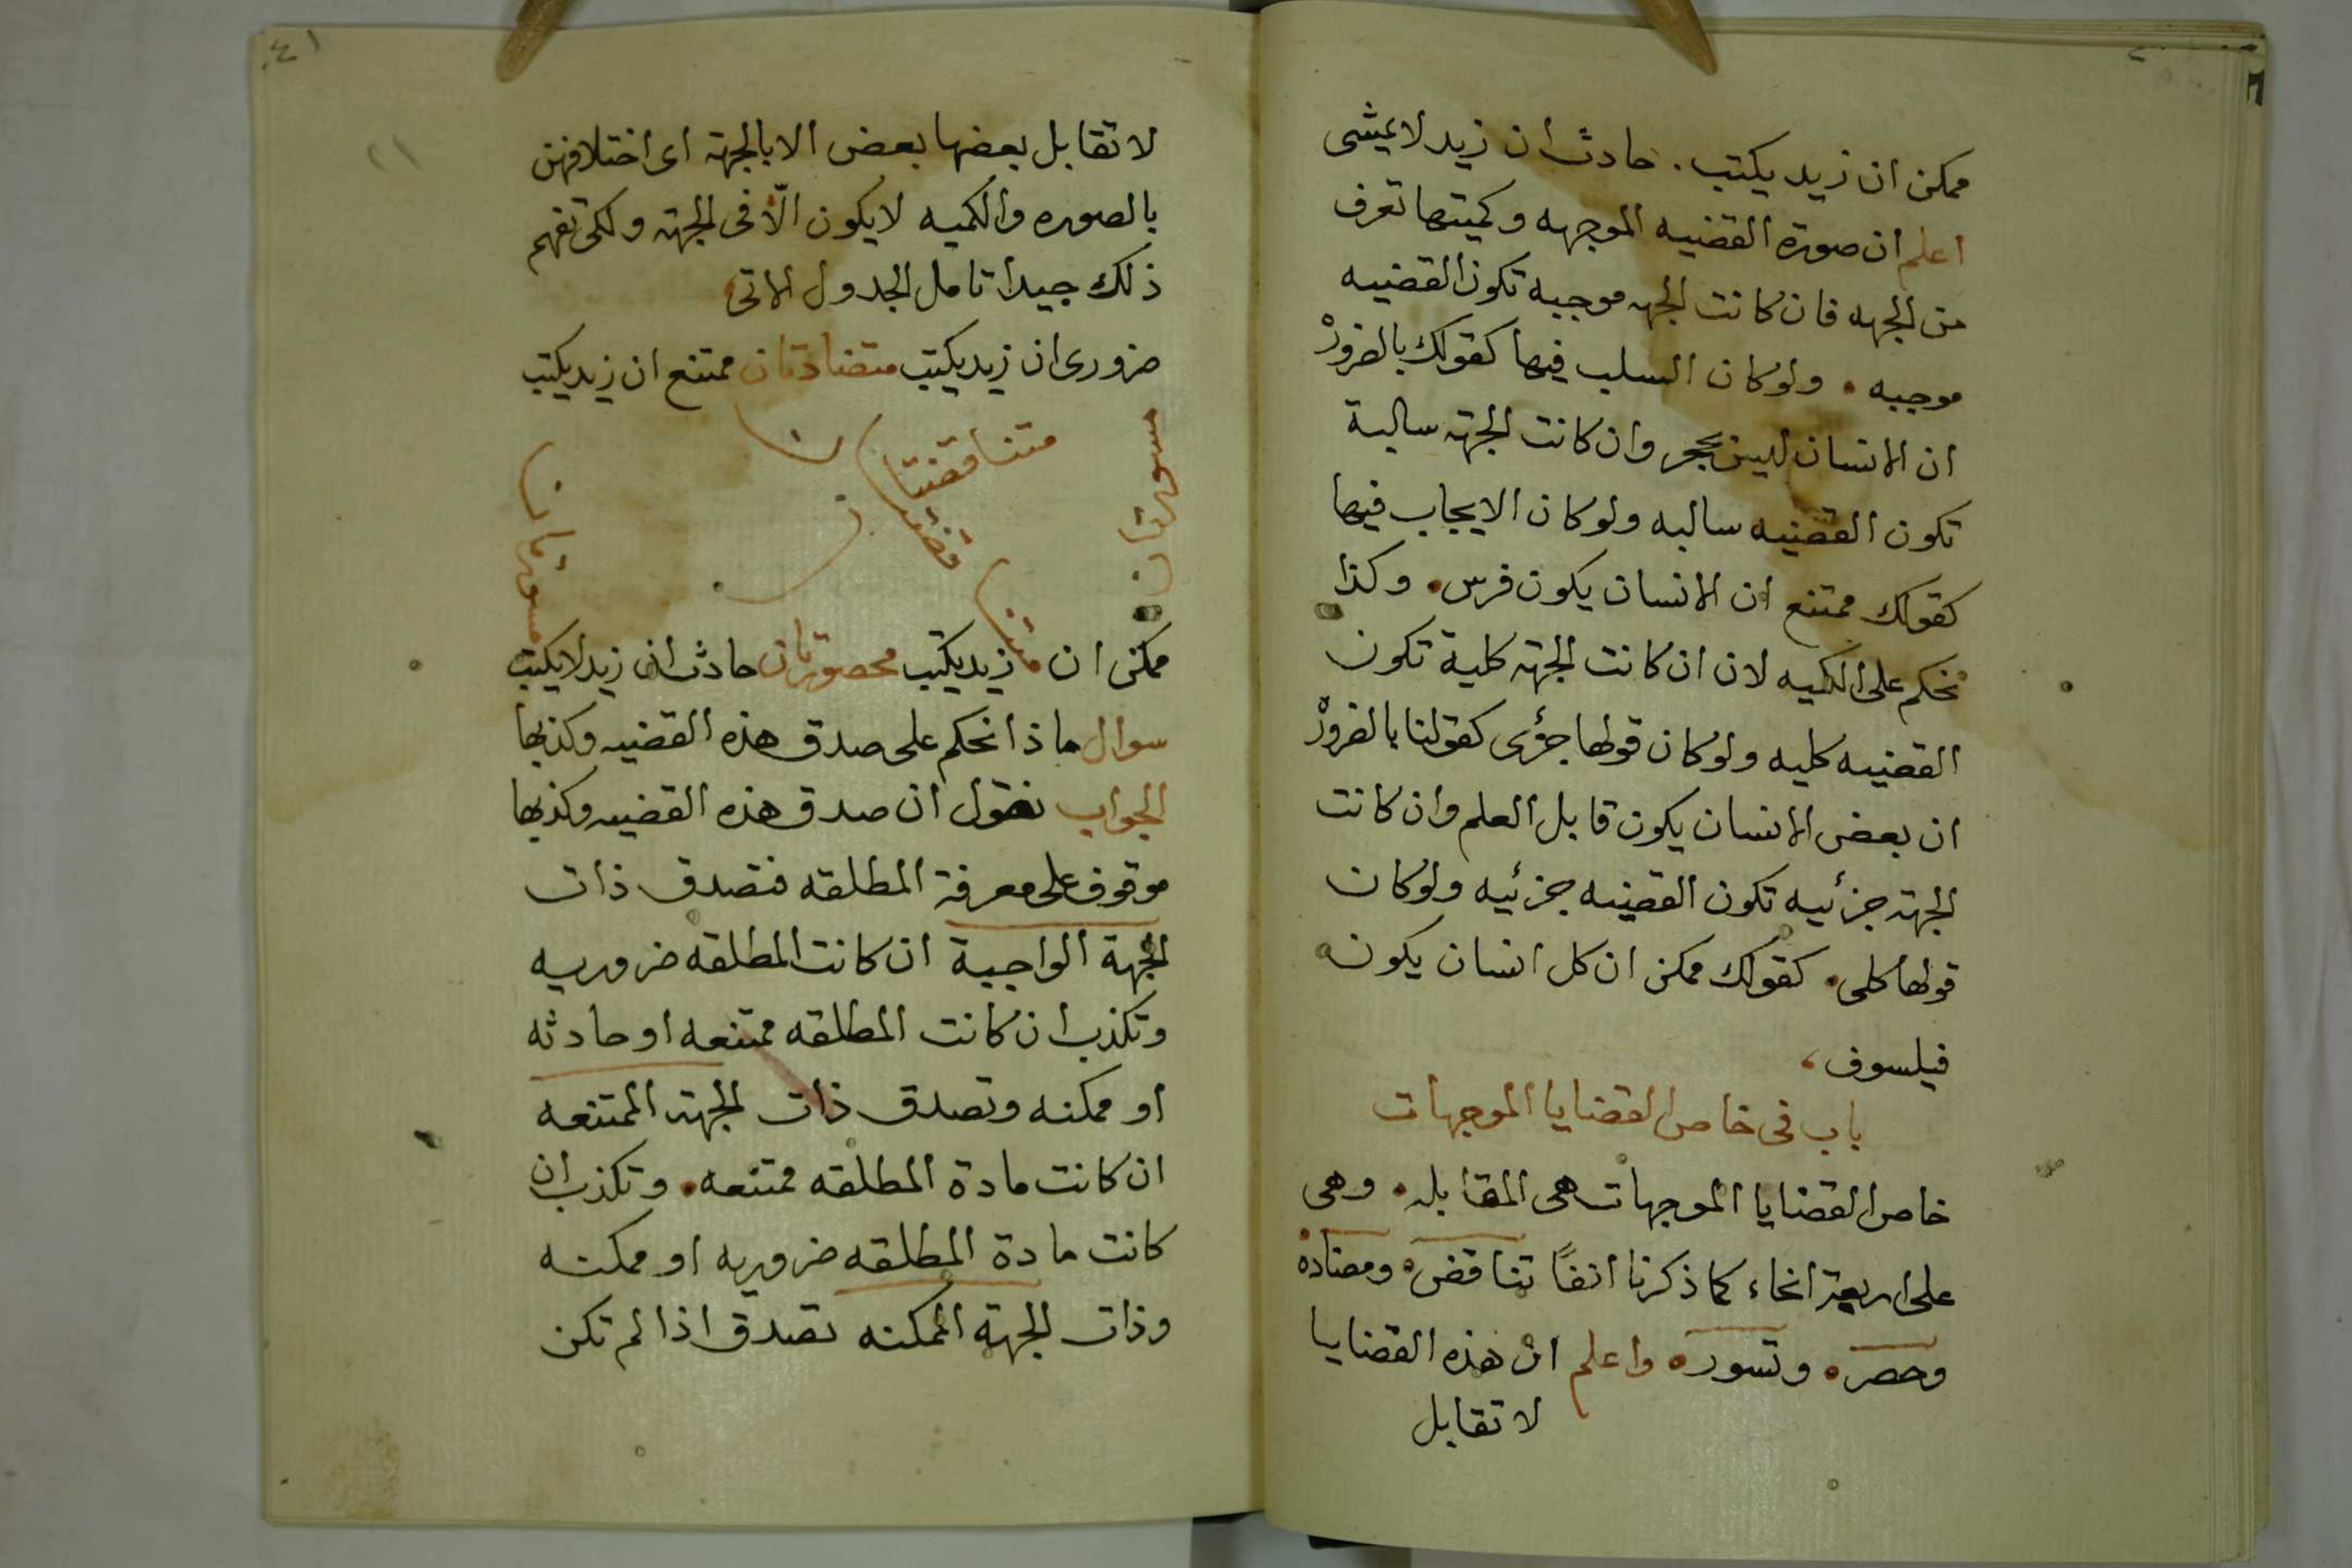 ممكن ان زيد يكتب . حادث ان زيد لا يمشى
اعلم ان صورة القضيه الموجهه وكميتها تعرف
من الجهه فان كانت الجهه موجبه تكون القضيه
موجبه . ولو كان السلب فيها كقولك بالضرورة
ان الانسان ليس بحجر وان كانت الجهة سالبة
تكون القضيه سالبه ولو كان الايجاب فيها
كقولك ممتنع ان الانسان يكون فرس . وكذا
نحكم على الكميه لان ان كانت الجهة كلية تكون
القضيه كليه ولو كان قولها جزئى كقولنا بالضرورة
ان بعض الانسان يكون قابل العلم وان كانت
الجهة جزئيه تكون القضيه جزئيه ولو كان
قولها كلى . كقولك ممكن ان كل انسان يكون
فيلسوف
باب فى خاص القضايا الموجهات
خاص القضايا الموجهات هى المقابله . وهى
على اربعة انحاء كما ذكرنا انفًا تناقض . ومضاده
وحصر . وتسور . واعلم ان هذه القضايا
لا تقابل
٤١
لا تقابل بعضها بعض الا بالجهة اى اختلافهن
بالصوره والكميه لا يكون الّا فى الجهة ولكى تفهم
ذلك جيدا تامل الجدول الاتى
ضرورى ان زيد يكتب متضادتان ممتنع ان زيد يكتب
متناقضتان
متناقضتان
مسورتان
مسورتان
ممكن ان زيد يكتب محصورتان حادث ان زيد لا يكتب
سوال ماذا نحكم على صدق هذه القضيه وكذبها
الجواب نقول ان صدق هذه القضيه وكذبها
موقوف على معرفة المطلقه فتصدق ذات
الجهة الواجبة ان كانت المطلقه ضروريه
وتكذب ان كانت المطلقه ممتنعه او حادثه
او ممكنه وتصدق ذات الجهة الممتنعه
ان كانت مادة المطلقه ممتنعه . وتكذب ان
كانت مادة المطلقه ضروريه او ممكنه
وذات الجهة الممكنه تصدق اذا لم تكن